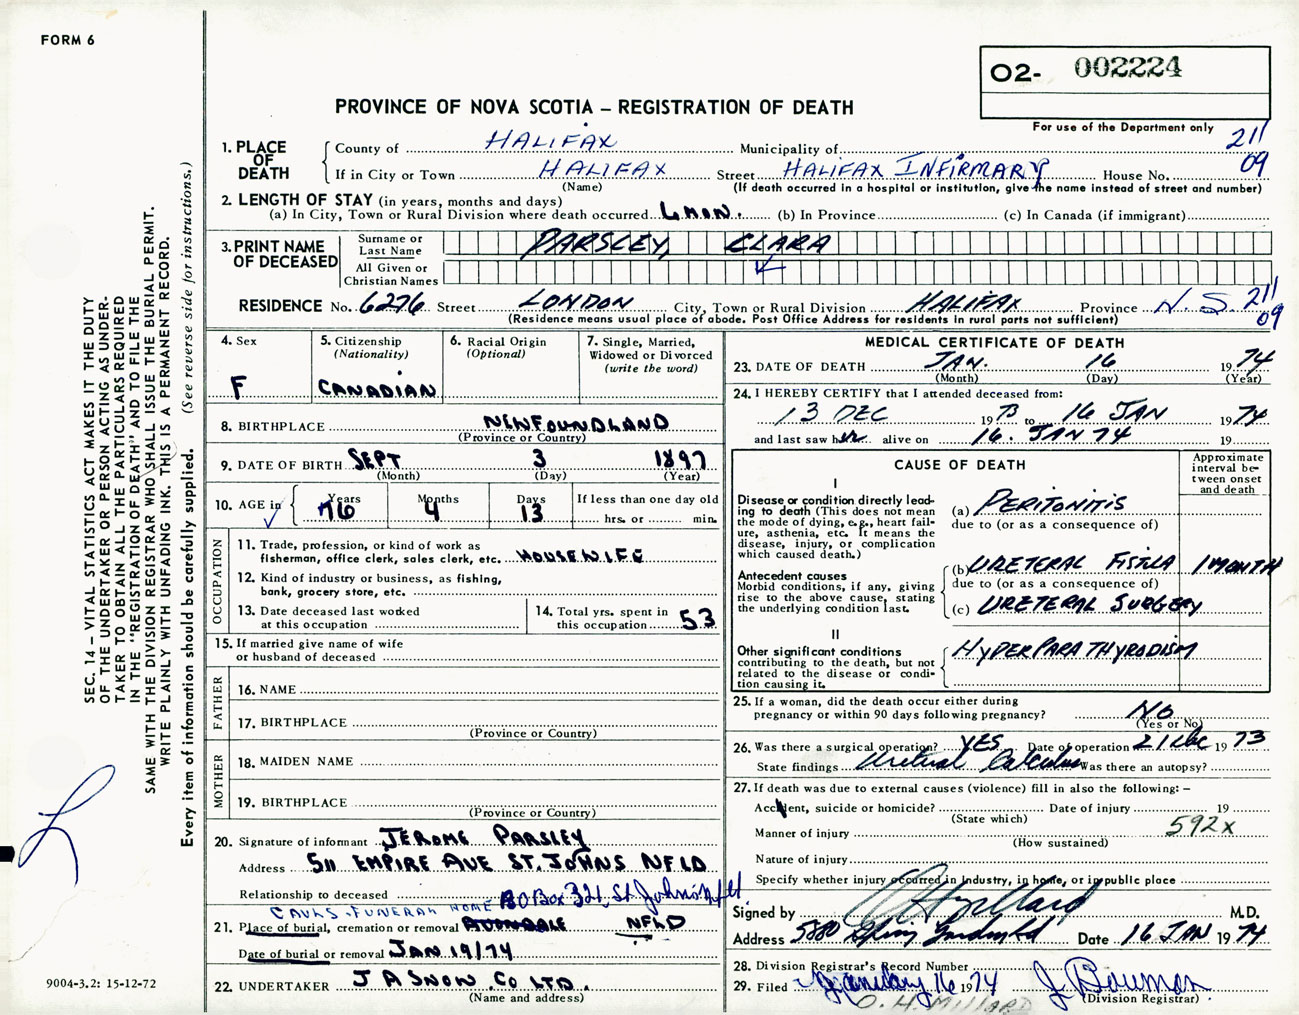 FORM 6
O2- 002224
PROVINCE OF NOVA SCOTIA – REGISTRATION OF DEATH
For use of the Department only
1. PLACE OF DEATH
County of HALIFAX Municipality of 211
If in City or Town HALIFAX Street HALIFAX INFIRMARY House No. 09
(Name) (If death occurred in a hospital or institution, give the name instead of street and number)
2. LENGTH OF STAY (in years, months and days)
(a) In City, Town or Rural Division where death occurred (b) In Province (c) In Canada (if immigrant)
3. PRINT NAME OF DECEASED
Surname or Last Name PARSLEY, CLARA
All Given or Christian Names
RESIDENCE No. 6276 Street LONDON City, Town or Rural Division HALIFAX Province N.S. 211
09
(Residence means usual place of abode. Post Office Address for residents in rural parts not sufficient)
4. Sex
F
5. Citizenship
(Nationality)
CANADIAN
6. Racial Origin
(Optional)
7. Single, Married,
Widowed or Divorced
(write the word)
8. BIRTHPLACE NEWFOUNDLAND
(Province or Country)
9. DATE OF BIRTH SEPT 3 1897
(Month) (Day) (Year)
10. AGE in
Years Months Days If less than one day old
76 4 13 hrs. or min.
OCCUPATION
11. Trade, profession, or kind of work as
fisherman, office clerk, sales clerk, etc. HOUSEWIFE
12. Kind of industry or business, as fishing,
bank, grocery store, etc.
13. Date deceased last worked
at this occupation
14. Total yrs. spent in
this occupation 53
15. If married give name of wife
or husband of deceased
FATHER
16. NAME
17. BIRTHPLACE
(Province or Country)
MOTHER
18. MAIDEN NAME
19. BIRTHPLACE
(Province or Country)
20. Signature of informant JEROME PARSLEY
Address 511 EMPIRE AVE ST. JOHNS NFLD
Relationship to deceased PO Box 321, St. John's Nfld
CAULS FUNERAL HOME
21. Place of burial, cremation or removal NFLD
Date of burial or removal JAN 19/74
22. UNDERTAKER J A SNOW CO LTD.
(Name and address)
MEDICAL CERTIFICATE OF DEATH
23. DATE OF DEATH JAN. 16 1974
(Month) (Day) (Year)
24. I HEREBY CERTIFY that I attended deceased from:
13 DEC 1973 to 16 JAN 1974
and last saw her alive on 16. JAN 74 19
CAUSE OF DEATH
Approximate interval between onset and death
I
Disease or condition directly leading to death (This does not mean the mode of dying, e.g., heart failure, asthenia, etc. It means the disease, injury, or complication which caused death.)
(a) PERITONITIS
due to (or as a consequence of)
Antecedent causes
Morbid conditions, if any, giving rise to the above cause, stating the underlying condition last.
(b) URETERAL FISTULA 1 MONTH
due to (or as a consequence of)
(c) URETERAL SURGERY
II
Other significant conditions
contributing to the death, but not related to the disease or condition causing it.
HYPERPARATHYRODISM
25. If a woman, did the death occur either during
pregnancy or within 90 days following pregnancy? NO
(Yes or No)
26. Was there a surgical operation? YES Date of operation 21 Dec 1973
State findings Calculus Was there an autopsy?
27. If death was due to external causes (violence) fill in also the following: –
Accident, suicide or homicide? Date of injury 19
(State which)
Manner of injury 592x
(How sustained)
Nature of injury
Specify whether injury occurred in industry, in home, or in public place
Signed by M.D.
Address 5880 Spring Garden Rd Date 16 JAN 1974
28. Division Registrar's Record Number
29. Filed January 16 1974 J. Bowman
(Division Registrar)
O. H. MILLARD
SEC. 14 – VITAL STATISTICS ACT MAKES IT THE DUTY
OF THE UNDERTAKER OR PERSON ACTING AS UNDER-
TAKER TO OBTAIN ALL THE PARTICULARS REQUIRED
IN THE "REGISTRATION OF DEATH" AND TO FILE THE
SAME WITH THE DIVISION REGISTRAR WHO SHALL ISSUE THE BURIAL PERMIT.
WRITE PLAINLY WITH UNFADING INK. THIS IS A PERMANENT RECORD.
Every item of information should be carefully supplied. (See reverse side for instructions.)
9004-3.2: 15-12-72